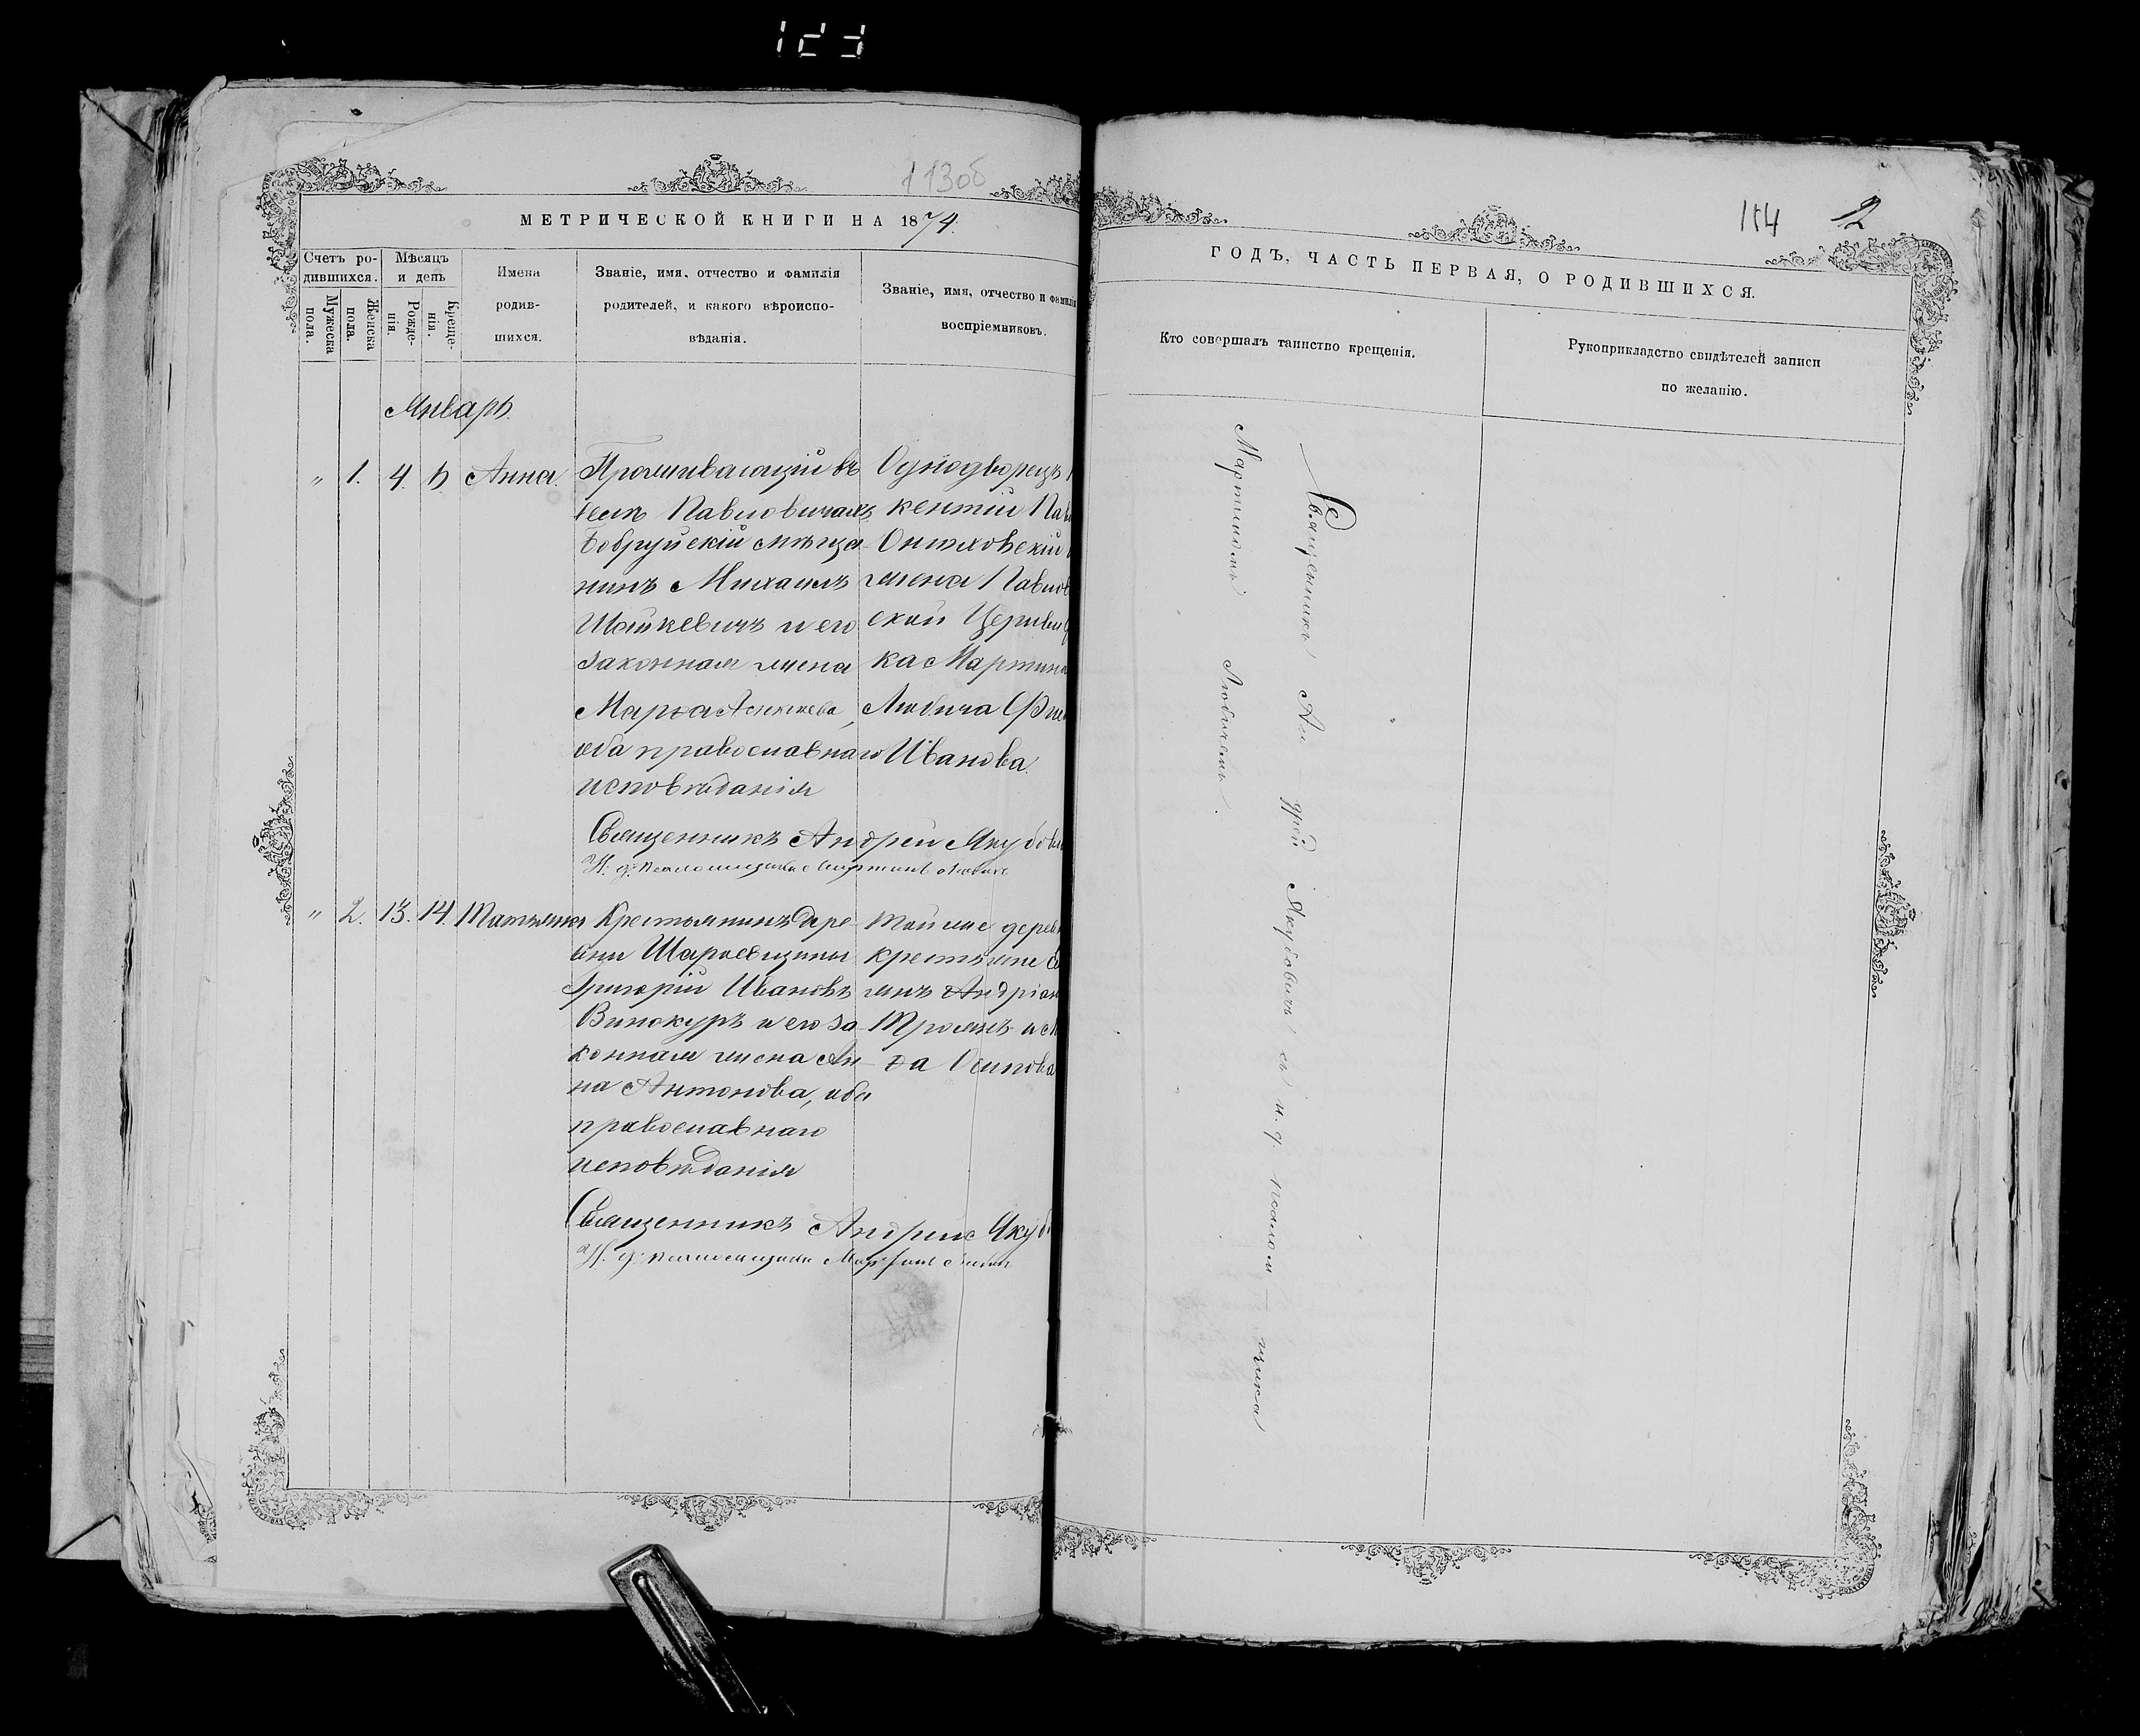 113об
МЕТРИЧЕСКОЙ КНИГИ НА 1874.
Счетъ ро-
дившихся.
Мужеска
пола.
Женска
пола.
Мѣсяцъ
и день
Рожде-
нія.
Креще-
нія.
Имена
родив-
шихся.
Званіе, имя, отчество и фамилія
родителей, и какого вѣроиспо-
вѣданія.
Званіе, имя, отчество и фамилія
воспріемниковъ.
Январь.
" 1. 4. 6. Анна.
Проживающій въ
селѣ Павловичахъ
Бобруйскій мѣща-
нинъ Михаилъ
и его
законная жена
Марѳа
оба православнаго
исповѣданія
Однодворецъ
кентій
жена
ской Церкви
ка Мартина
Любича
Иванова.
Священникъ Андрей
И. д. псаломщика Мартинъ Любич
" 2. 13. 14. Татьяна
Крестьянинъ дере-
вни
Григорій Ивановъ
Винокуръ и его за-
конная жена Ан-
на Антонова, оба
православнаго
исповѣданія
Той же
крестьяне
Андріан
и
ѳа Осипова
Священникъ Андрей
И. д. псаломщика Мартинъ Любич
114 2
ГОДЪ, ЧАСТЬ ПЕРВАЯ, О РОДИВШИХСЯ.
Кто совершалъ таинство крещенія.
Рукоприкладство свидѣтелей записи
по желанію.
Священникъ Андрей Якубовичъ съ и. д. псалом-
щика
Мартиномъ Любичемъ.